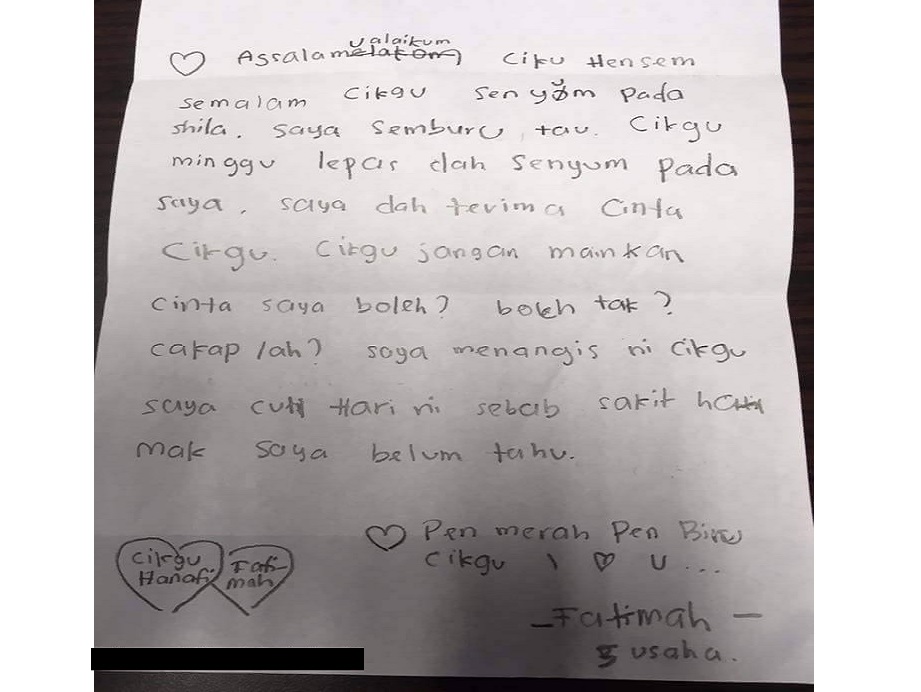 ♡ Assalamualaikum Ciku Hensem
semalam Cikgu senyum pada
shila. saya semburu tau. Cikgu
minggu lepas dah senyum pada
saya. saya dah terima Cinta
Cikgu. Cikgu jangan mainkan
cinta saya boleh? boleh tak?
cakap lah? saya menangis ni cikgu
saya cuti Hari ni sebab sakit hati
mak saya belum tahu.
♡ Pen merah Pen Biru
cikgu I ♡ U...
Cikgu Hanafi
Fati-mah
–Fatimah–
5 usaha.